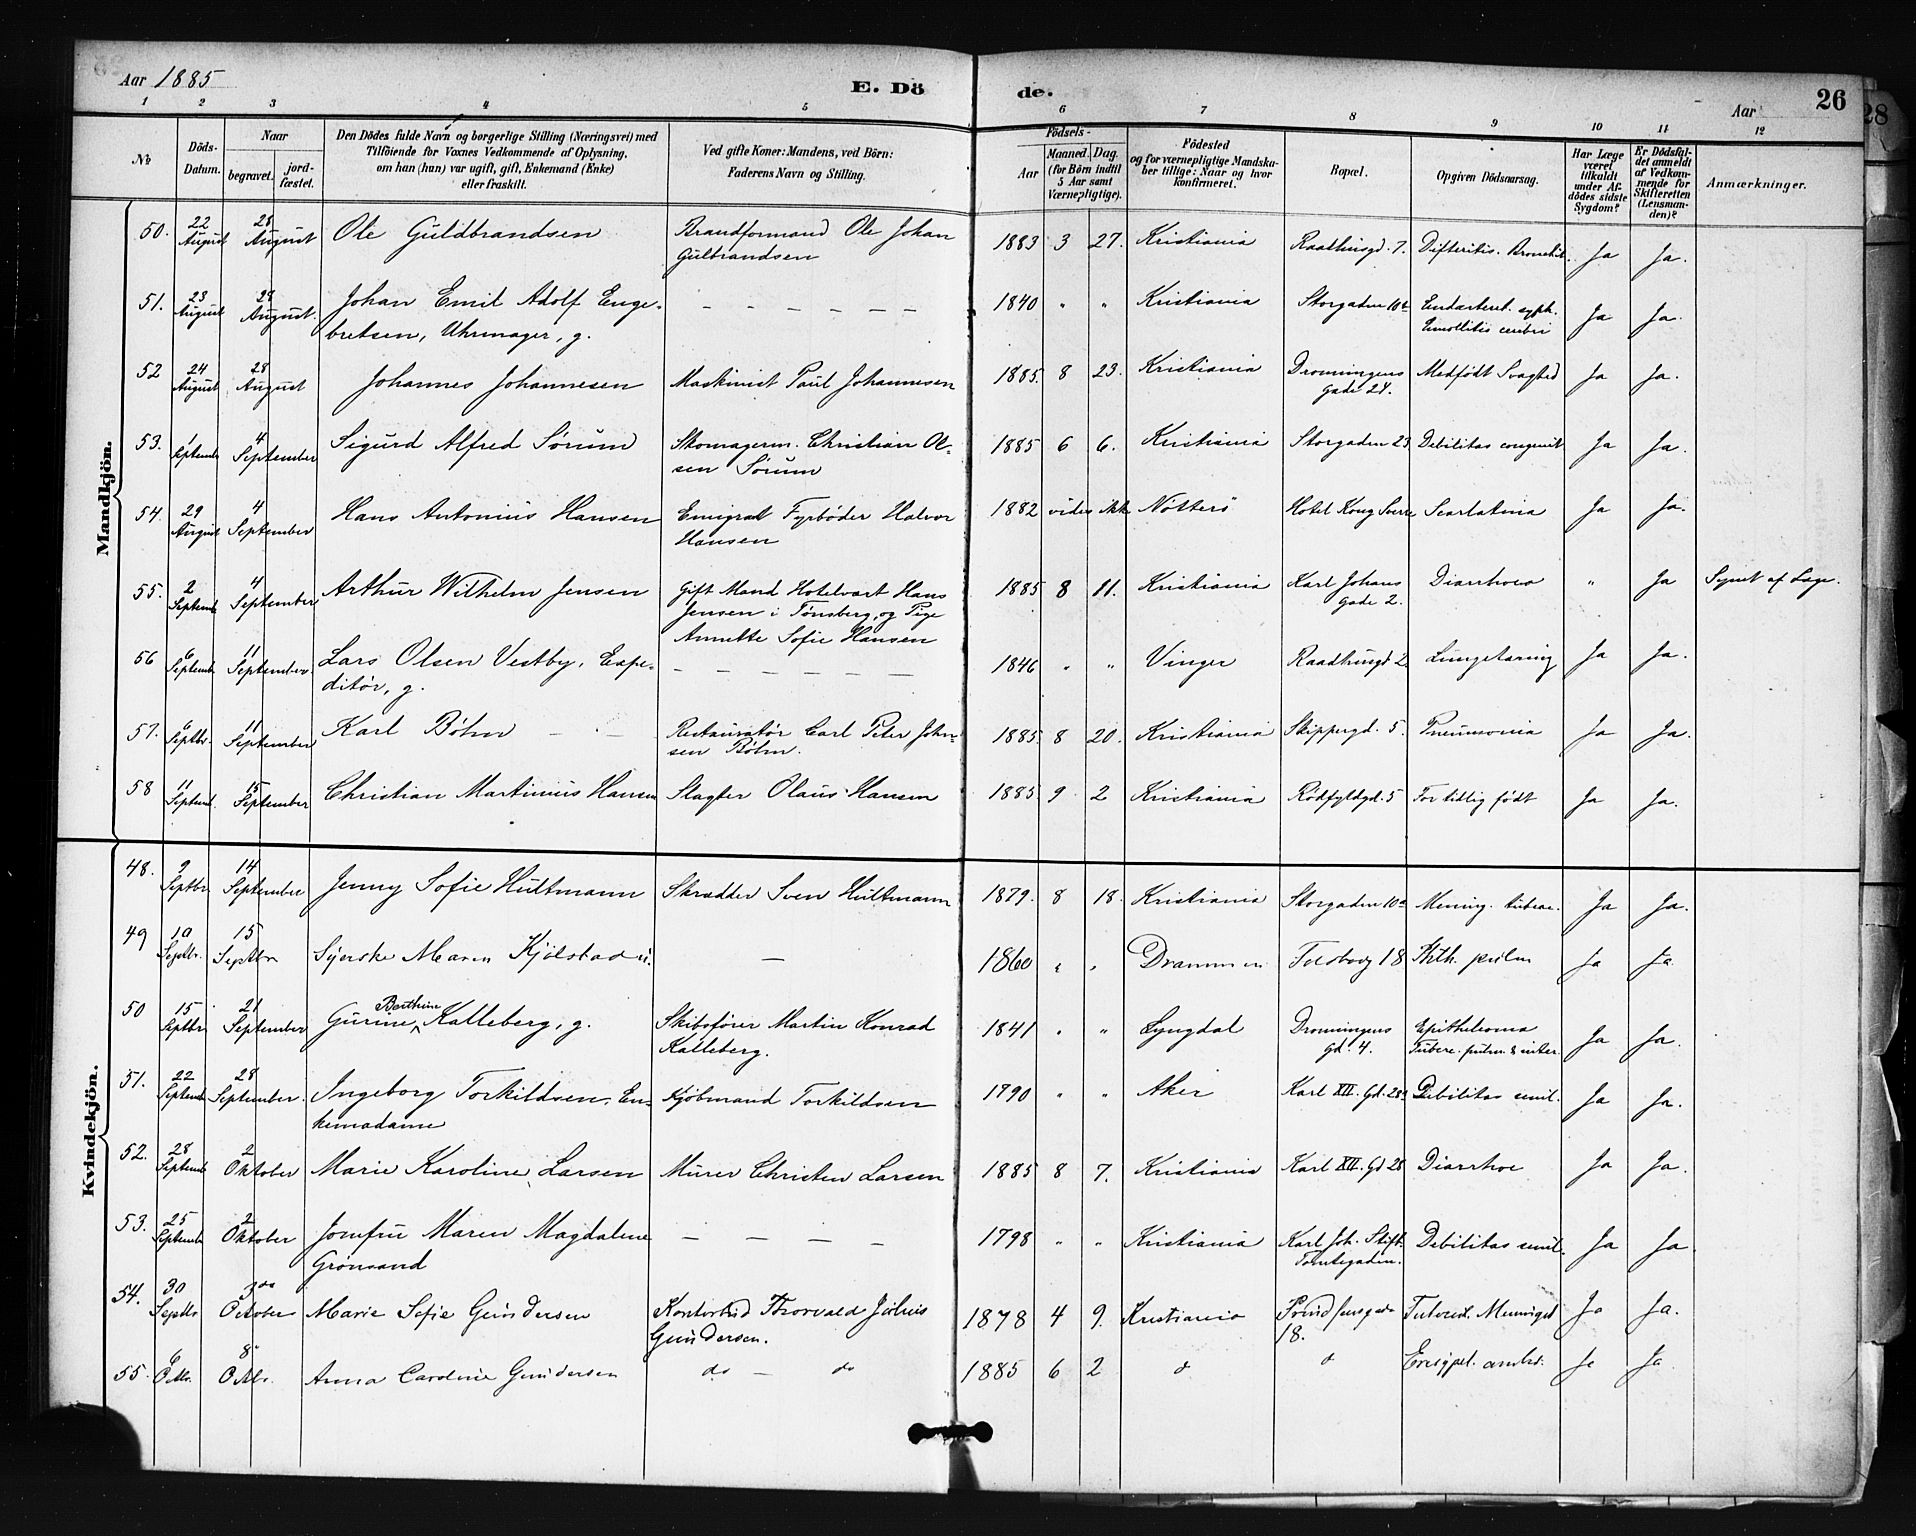 Aar 1885 E. Dö de. Aar 26
1 2 3 4 5 6 7 8 9 10 11 12
No Döds-Datum. Naar begravet. jordfæstet. Den Dödes fulde Navn og borgerlige Stilling (Næringsvei) med Tilföiende for Voxnes Vedkommende af Oplysning, om han (hun) var ugift, gift, Enkemand (Enke) eller fraskilt. Ved gifte Koner: Mandens, ved Börn: Faderens Navn og Stilling. Födsels- Aar Maaned. Dag. (for Börn indtil 5 Aar samt Værnepligtige). Födested og for værnepligtige Mandskaber tillige: Naar og hvor konfirmeret. Bopæl. Opgiven Dödsaarsag. Har Læge været tilkaldt under Afdödes sidste Sygdom? Er Dödsfaldet anmeldt af Vedkommende for Skifteretten (Lensmanden)? Anmærkninger.
Mandkjön.
50. 22 August 28 August Ole Guldbrandsen Brandformand Ole Johan Gulbrandsen 1883 3 27. Kristiania Raadhusgd. 7. Difteritis. Bronchit. Ja Ja.
51. 23 August 29 August. Johan Emil Adolf Engebretsen, Uhrmager, g. — — — — — 1840 " " Kristiania Storgaden 10a Endarterit. syph. Emollitis cerebri Ja Ja.
52 24 August 28 August Johannes Johannesen Maskinist Paul Johannesen 1885. 8 23. Kristiania Dronningens Gade 24. Medfödt Svaghed Ja Ja.
53. 1 Septemb 4 September Sigurd Alfred Sørum Skomagerm. Christian Olsen Sørum 1885 6 6. Kristiania Storgaden 23 Debilitas congenit. Ja Ja.
54. 29 August 4 September Hans Antonius Hansen Emigrat Fyrbøder Halvor Hansen 1882 vides ikke Nötterö Hotel Kong Sverre Scarlatina Ja Ja.
55. 2 Septemb 4 September Arthur Wilhelm Jensen Gift Mand Hotelvært Hans Jensen i Tønsberg, og Pige Annette Sofie Hansen 1885 8 11. Kristiania Karl Johans Gade 2. Diarrhoea " Ja Synet af Læge.
56 6 Septemb 11 September. Lars Olsen Vestby, Expeditør, g. — — — — — 1846 " " Vinger Raadhusgd 2 Lungetæring Ja Ja.
57. 6 Septbr. 11 September Karl Bøhn — — Restauratør Carl Peter Johnsen Bøhn. 1885. 8 20. Kristiania Skippergd. 5. Pneumonia Ja Ja.
58 11 Septemb. 15 September Christian Martinius Hansen Slagter Olaus Hansen 1885 9 2 Kristiania Rødfyldgd. 5 For tidlig født Ja Ja.
Kvindekjön.
48. 9 Septbr. 14 September Jenny Sofie Hultmann Skrædder Sven Hultmann 1879. 8 18. Kristiania Storgaden 10a Mening. tuberc. Ja Ja.
49 10 Septbr. 15 Septbr Syerske Maren Kjölstad u. — 1860 " " Drammen Toldbog 18 Phth. pulm Ja Ja.
50 15 Septbr 21 September Gurine Berthine Kalleberg, g. Skibsfører Martin Konrad Kalleberg. 1841 " " Lyngdal Dronningens gd. 4. Epithelioma Tuberc. pulm & inter. Ja Ja.
51. 22 Septemb 28 September. Ingeborg Torkildsen, Enkemadame Kjöbmand Torkildsen 1790 " " Aker Karl XII. Gd. 28a Debilitas senil. Ja Ja.
52. 28 Septemb 2 Oktober Marie Karoline Larsen Murer Christen Larsen 1885 8 7. Kristiania Karl XII. Gd 28 Diarrhoe Ja Ja.
53. 25 Septemb 2 Oktober Jomfru Maren Magdalene Grönsand — — — — 1798 " " Kristiania Karl Joh. Stift. Tomtegaden. Debilitas senil. Ja Ja
54. 30 Septbr 3die October Marie Sofie Gundersen Kontorbud Thorvald Julius Gundersen. 1878 4 9. Kristiania Prindsensgade 18. Tubercul. Meningit Ja Ja.
55. 6 Octbr. 8 Octbr. Anna Caroline Gundersen do — do 1885 6 2 d d Erysipel. ambul. Ja Ja